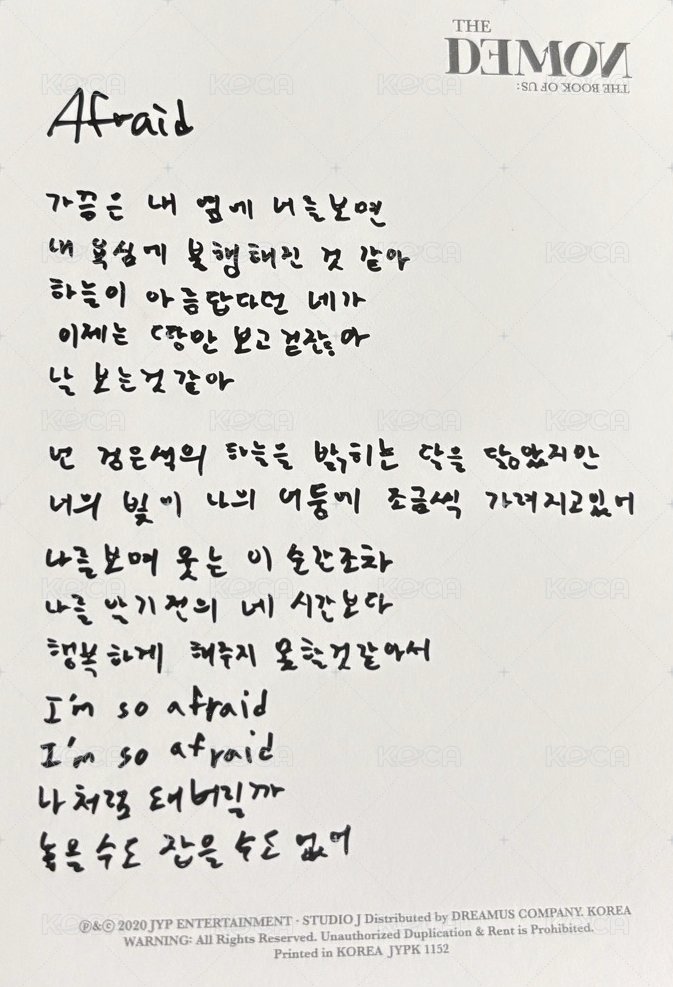 THE
DEMON
THE BOOK OF US:
Afraid
가끔은 내 옆에 너를보면
내 욕심에 불행해진 것 같아
하늘이 아름답다던 네가
이제는 땅만 보고 걷잖아
날 보는것같아
넌 검은색의 하늘을 밝히는 달을 닮았지만
너의 빛이 나의 어둠에 조금씩 가려지고있어
나를보며 웃는 이 순간조차
나를 알기전의 네 시간보다
행복하게 해주지 못할것같아서
I'm so afraid
I'm so afraid
나처럼 돼버릴까
놓을 수도 잡을 수도 없어
Ⓟ&ⓒ 2020 JYP ENTERTAINMENT · STUDIO J Distributed by DREAMUS COMPANY. KOREA
WARNING: All Rights Reserved. Unauthorized Duplication & Rent is Prohibited.
Printed in KOREA JYPK 1152